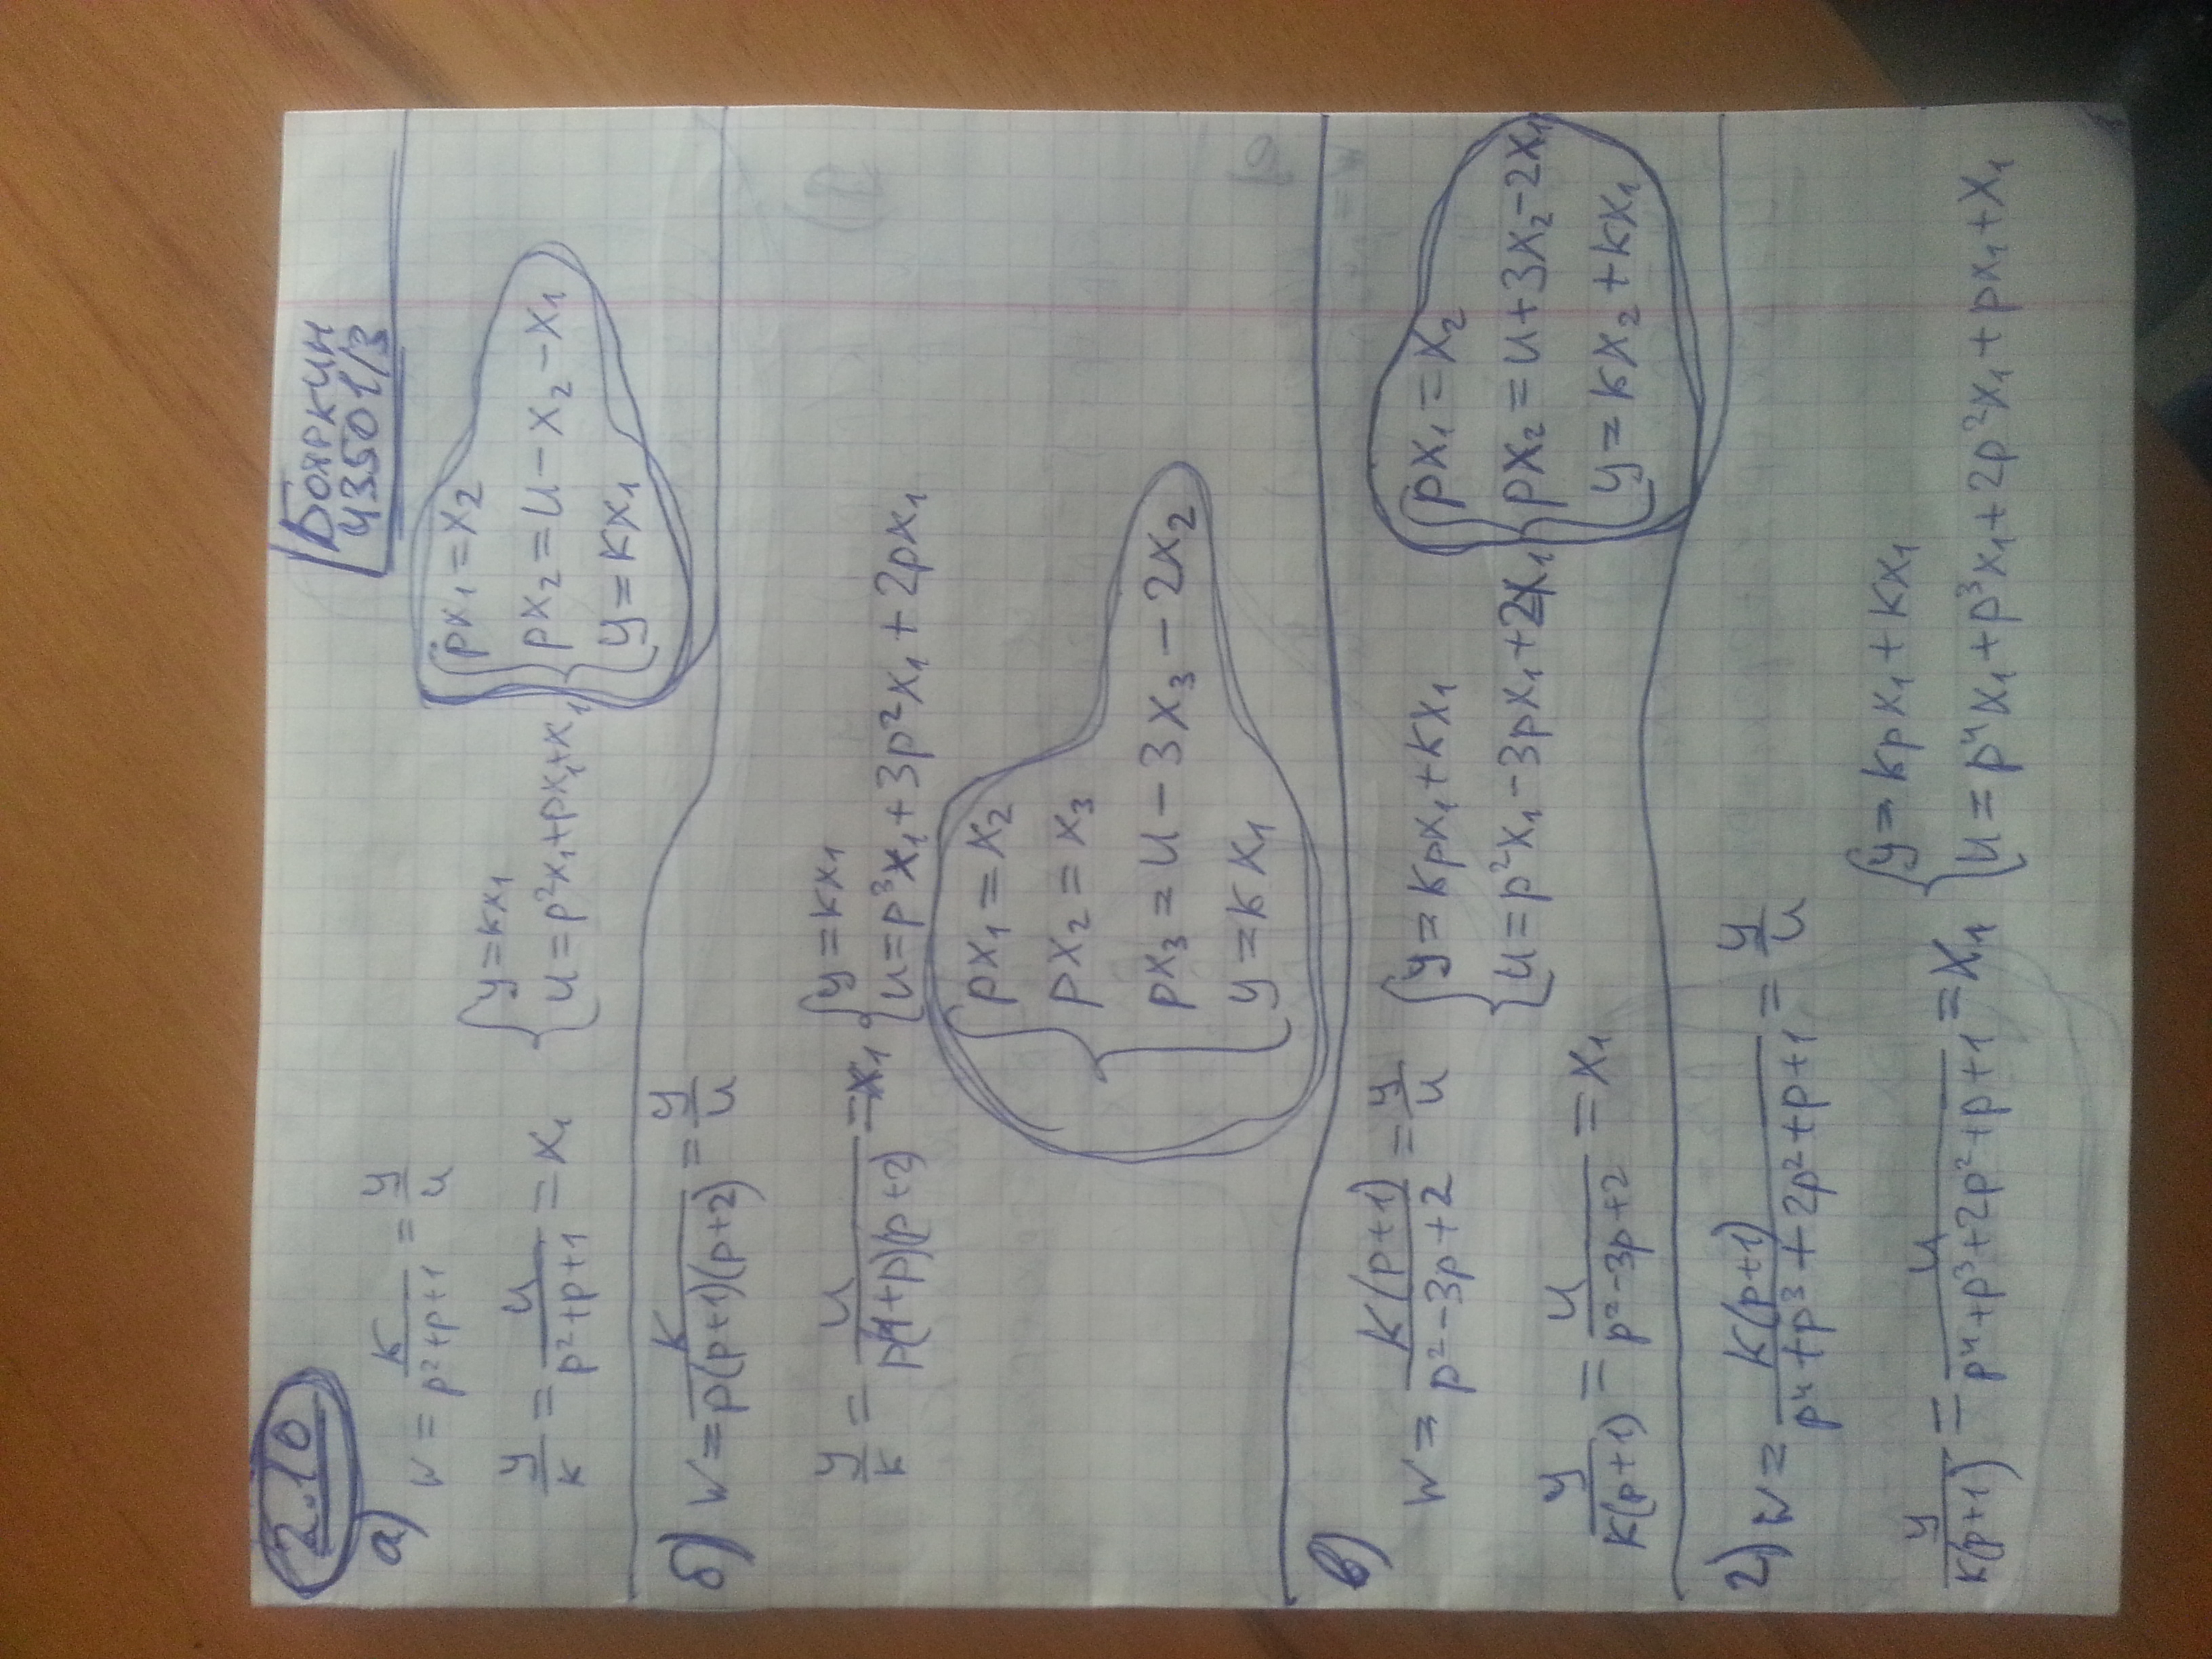 2.10
Бояркин
43501/3
а)
W = K/(p²+p+1) = y/u
y/K = u/(p²+p+1) = x₁
{ y = Kx₁
u = p²x₁+px₁+x₁
{ px₁ = x₂
px₂ = u − x₂ − x₁
y = Kx₁
б) W = K/(p(p+1)(p+2)) = y/u
y/K = u/(p(1+p)(p+2)) = x₁
{ y = Kx₁
u = p³x₁ + 3p²x₁ + 2px₁
{ px₁ = x₂
px₂ = x₃
px₃ = u − 3x₃ − 2x₂
y = Kx₁
в)
W = K(p+1)/(p²−3p+2) = y/u
y/(K(p+1)) = u/(p²−3p+2) = x₁
{ y = Kpx₁ + Kx₁
u = p²x₁ − 3px₁ + 2x₁
{ px₁ = x₂
px₂ = u + 3x₂ − 2x₁
y = Kx₂ + Kx₁
г) W = K(p+1)/(p⁴+p³+2p²+p+1) = y/u
y/(K(p+1)) = u/(p⁴+p³+2p²+p+1) = x₁
{ y = Kpx₁ + Kx₁
u = p⁴x₁ + p³x₁ + 2p²x₁ + px₁ + x₁